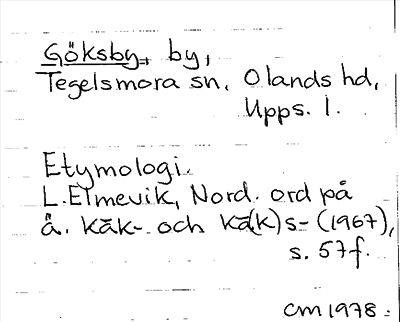 Göksby, by,
Tegelsmora sn, Olands hd,
Upps. l.
Etymologi.
L. Elmevik, Nord. ord på
å. kāk- och kā(k)s- (1967),
s. 57f.
CM 1978.